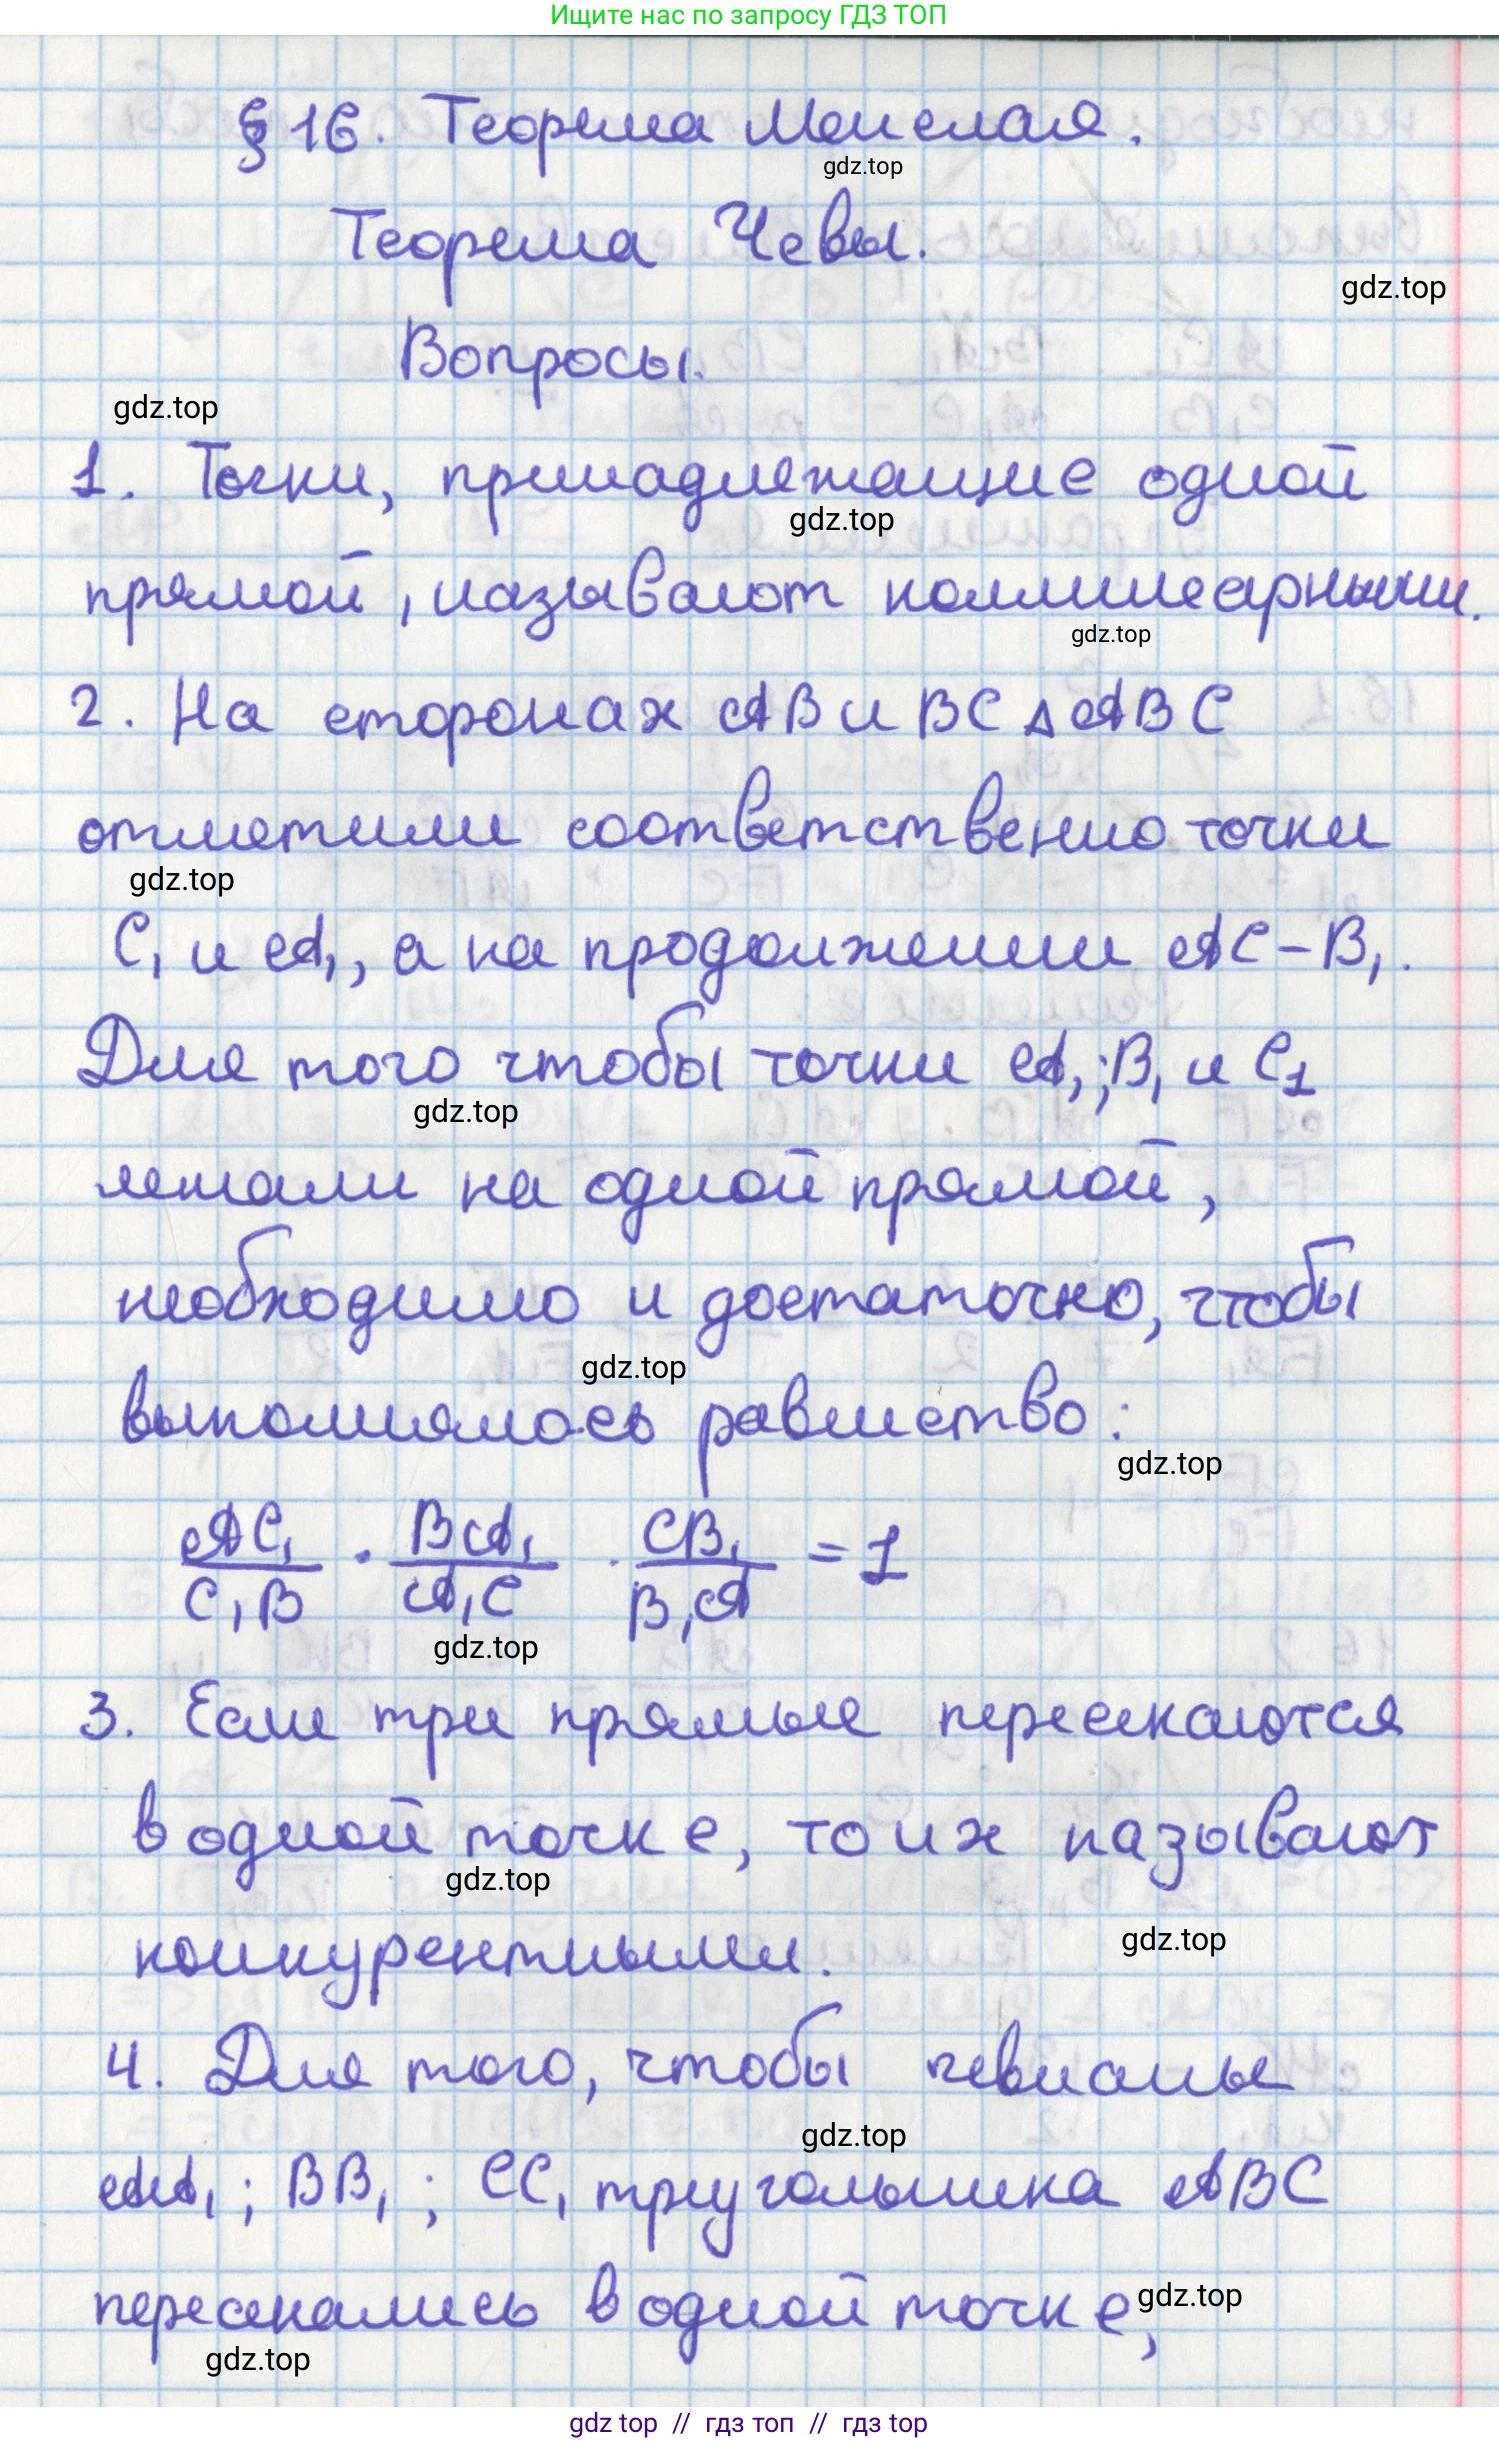 Ищите нас по запросу ГДЗ ТОП
§ 16. Теорема Менелая.
gdz.top
Теорема Чевы.
gdz.top
Вопросы.
gdz.top
1. Точки, принадлежащие одной
gdz.top
прямой, называют коллинеарными.
gdz.top
2. На сторонах AB и BC △ABC
отметили соответственно точки
gdz.top
C₁ и A₁, а на продолжении AC – B₁.
Для того чтобы точки A₁; B₁ и C₁
gdz.top
лежали на одной прямой,
необходимо и достаточно, чтобы
gdz.top
выполнялось равенство:
gdz.top
AC₁/C₁B · BA₁/A₁C · CB₁/B₁A = 1
gdz.top
3. Если три прямые пересекаются
в одной точке, то их называют
gdz.top
конкурентными.
gdz.top
4. Для того, чтобы чевианы
gdz.top
AA₁; BB₁; CC₁ треугольника ABC
пересекались в одной точке,
gdz.top
gdz.top
gdz top // гдз топ // гдз top